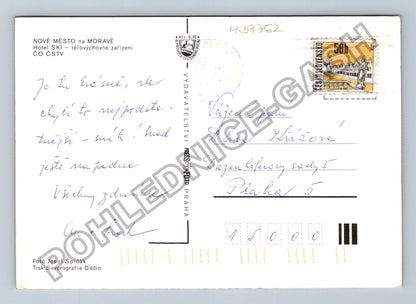 NOVÉ MĚSTO na MORAVĚ
Hotel SKI – tělovýchovné zařízení
ČO ČSTV
Je tu krásně, ale
chybí to nejpodsta-
tnější – sníh! Snad
ještě napadne
Všichni zdraví
Foto Josef
Tisk Severografia Děčín
VYDAVATELSTVÍ PRESSFOTO PRAHA
M39762
50h
ČESKOSLOVENSKO
Vážená paní
Křížová
sady 5
Praha 5
1 5 0 0 0
POHLEDNICE-GASH